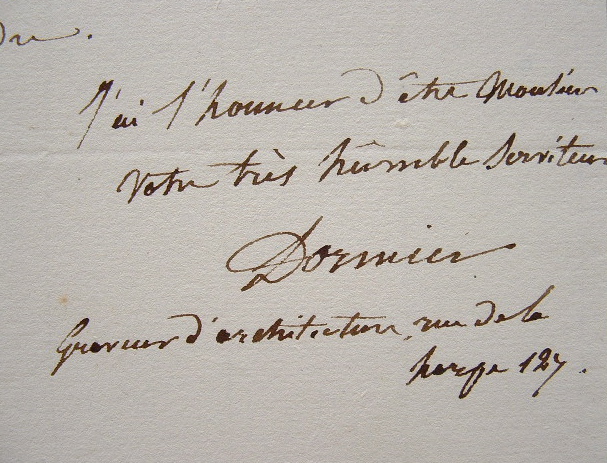 J'ai l'honneur d'être Monsieur
Votre très hûmble Serviteur
Dormier
Graveur d'architecture, rue de la
harpe 127.